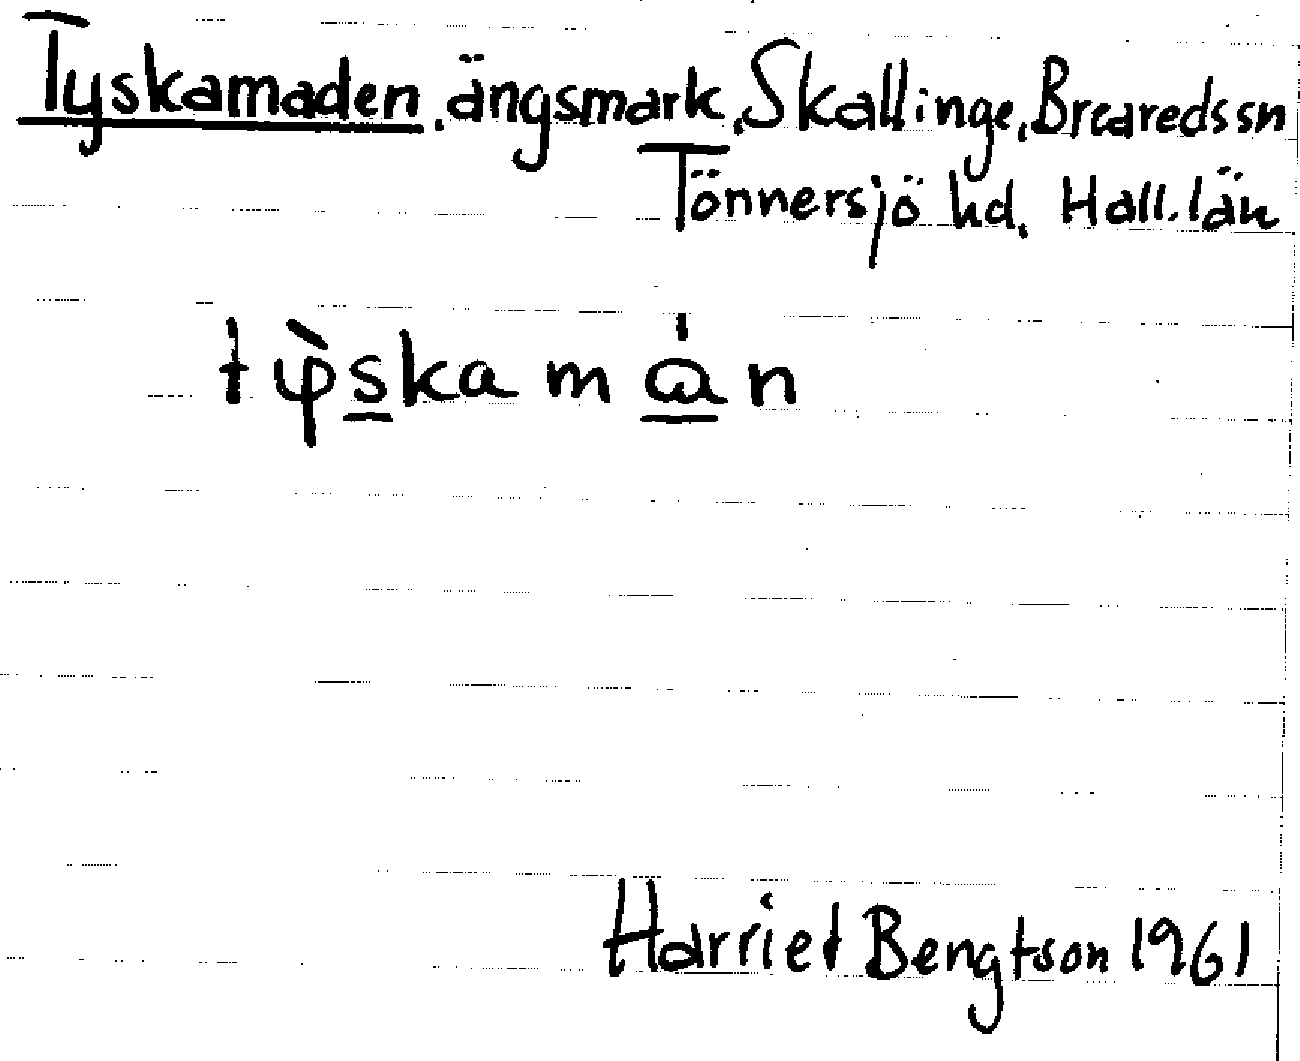 Tyskamaden, ängsmark, Skallinge, Breareds sn
Tönnersjö hd. Hall. län
Harriet Bengtson 1961